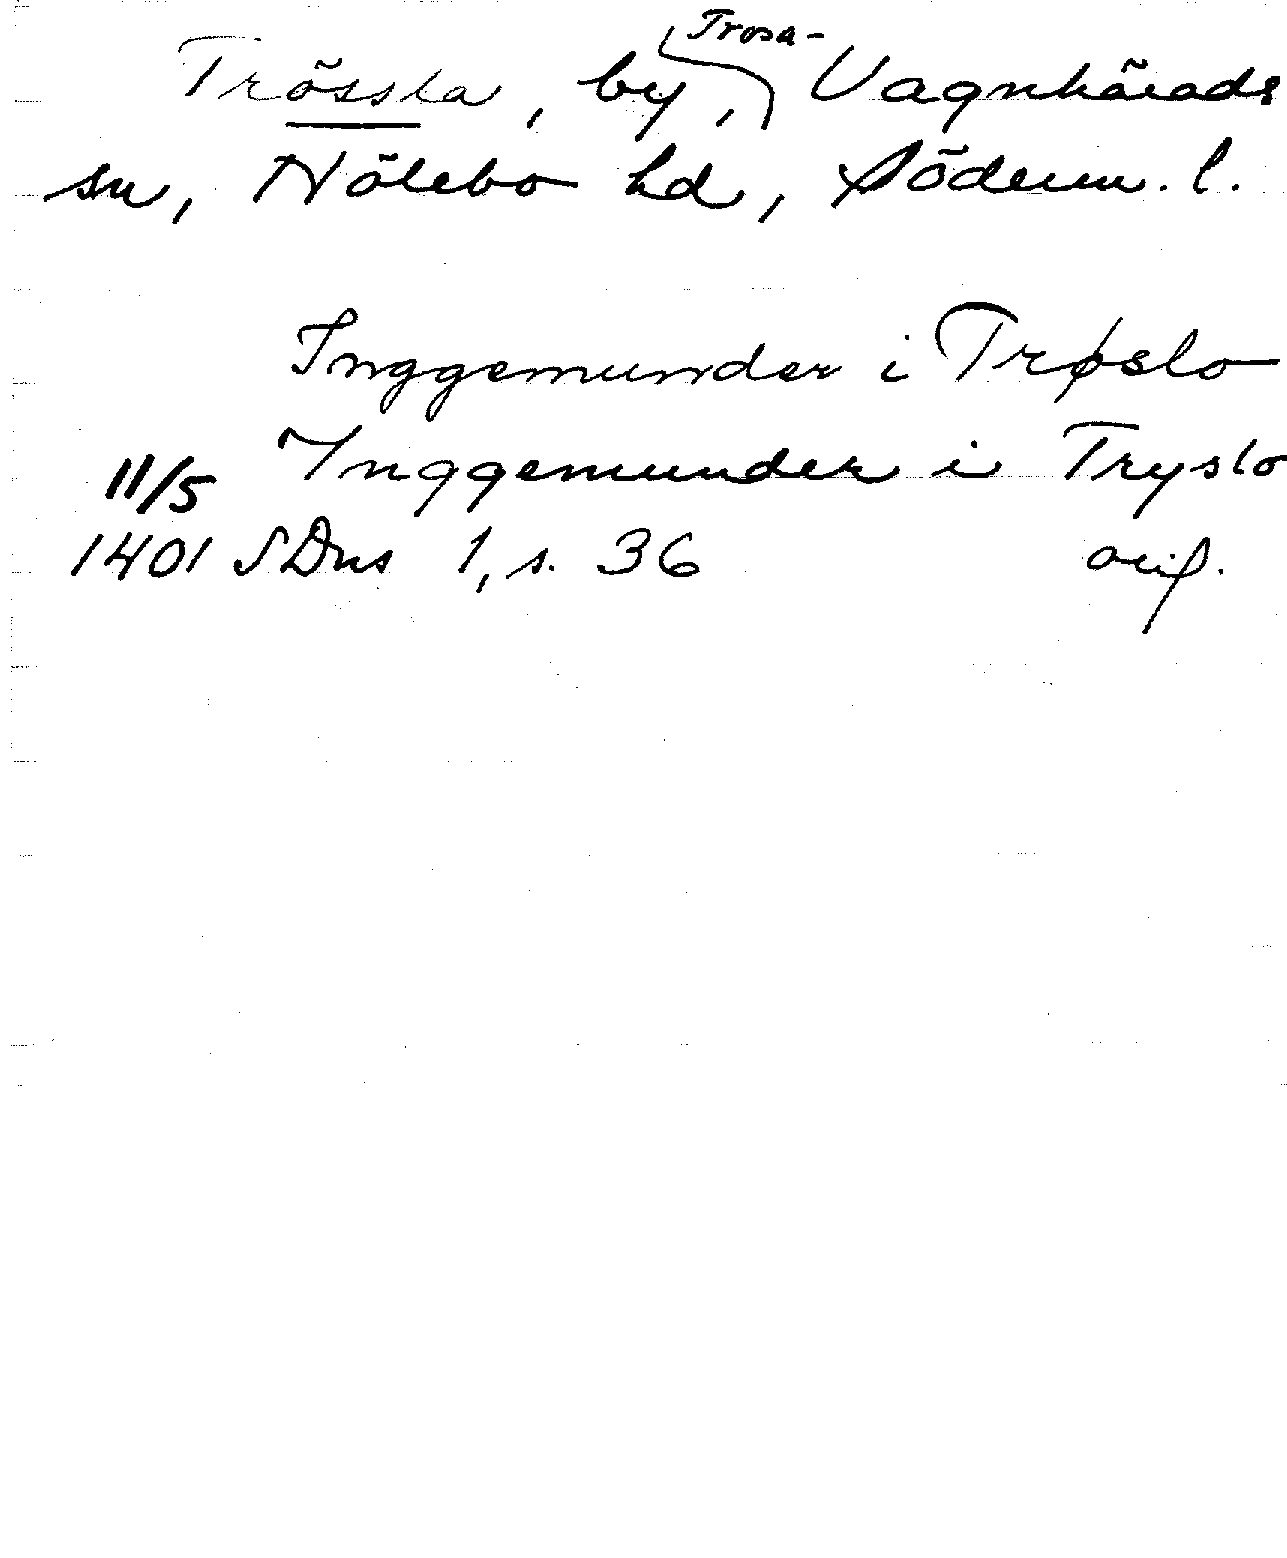 Trosa-
Trössla, by, Vagnhärads
sn, Hölebo hd, Söderm. l.
Inggemunder i Trøslo
11/5 Inggemunder i Tryslo
1401 SDns 1, s. 36 orig.